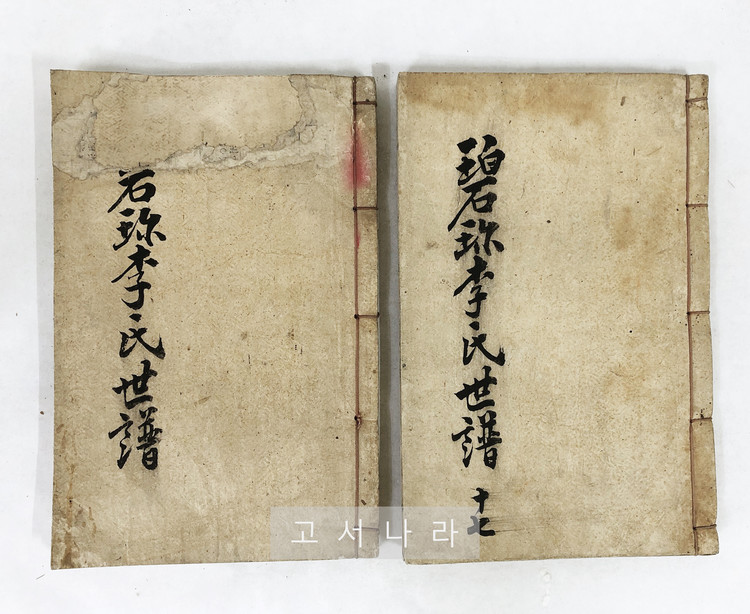 石珎李氏世譜
碧珎李氏世譜 十七
고서나라